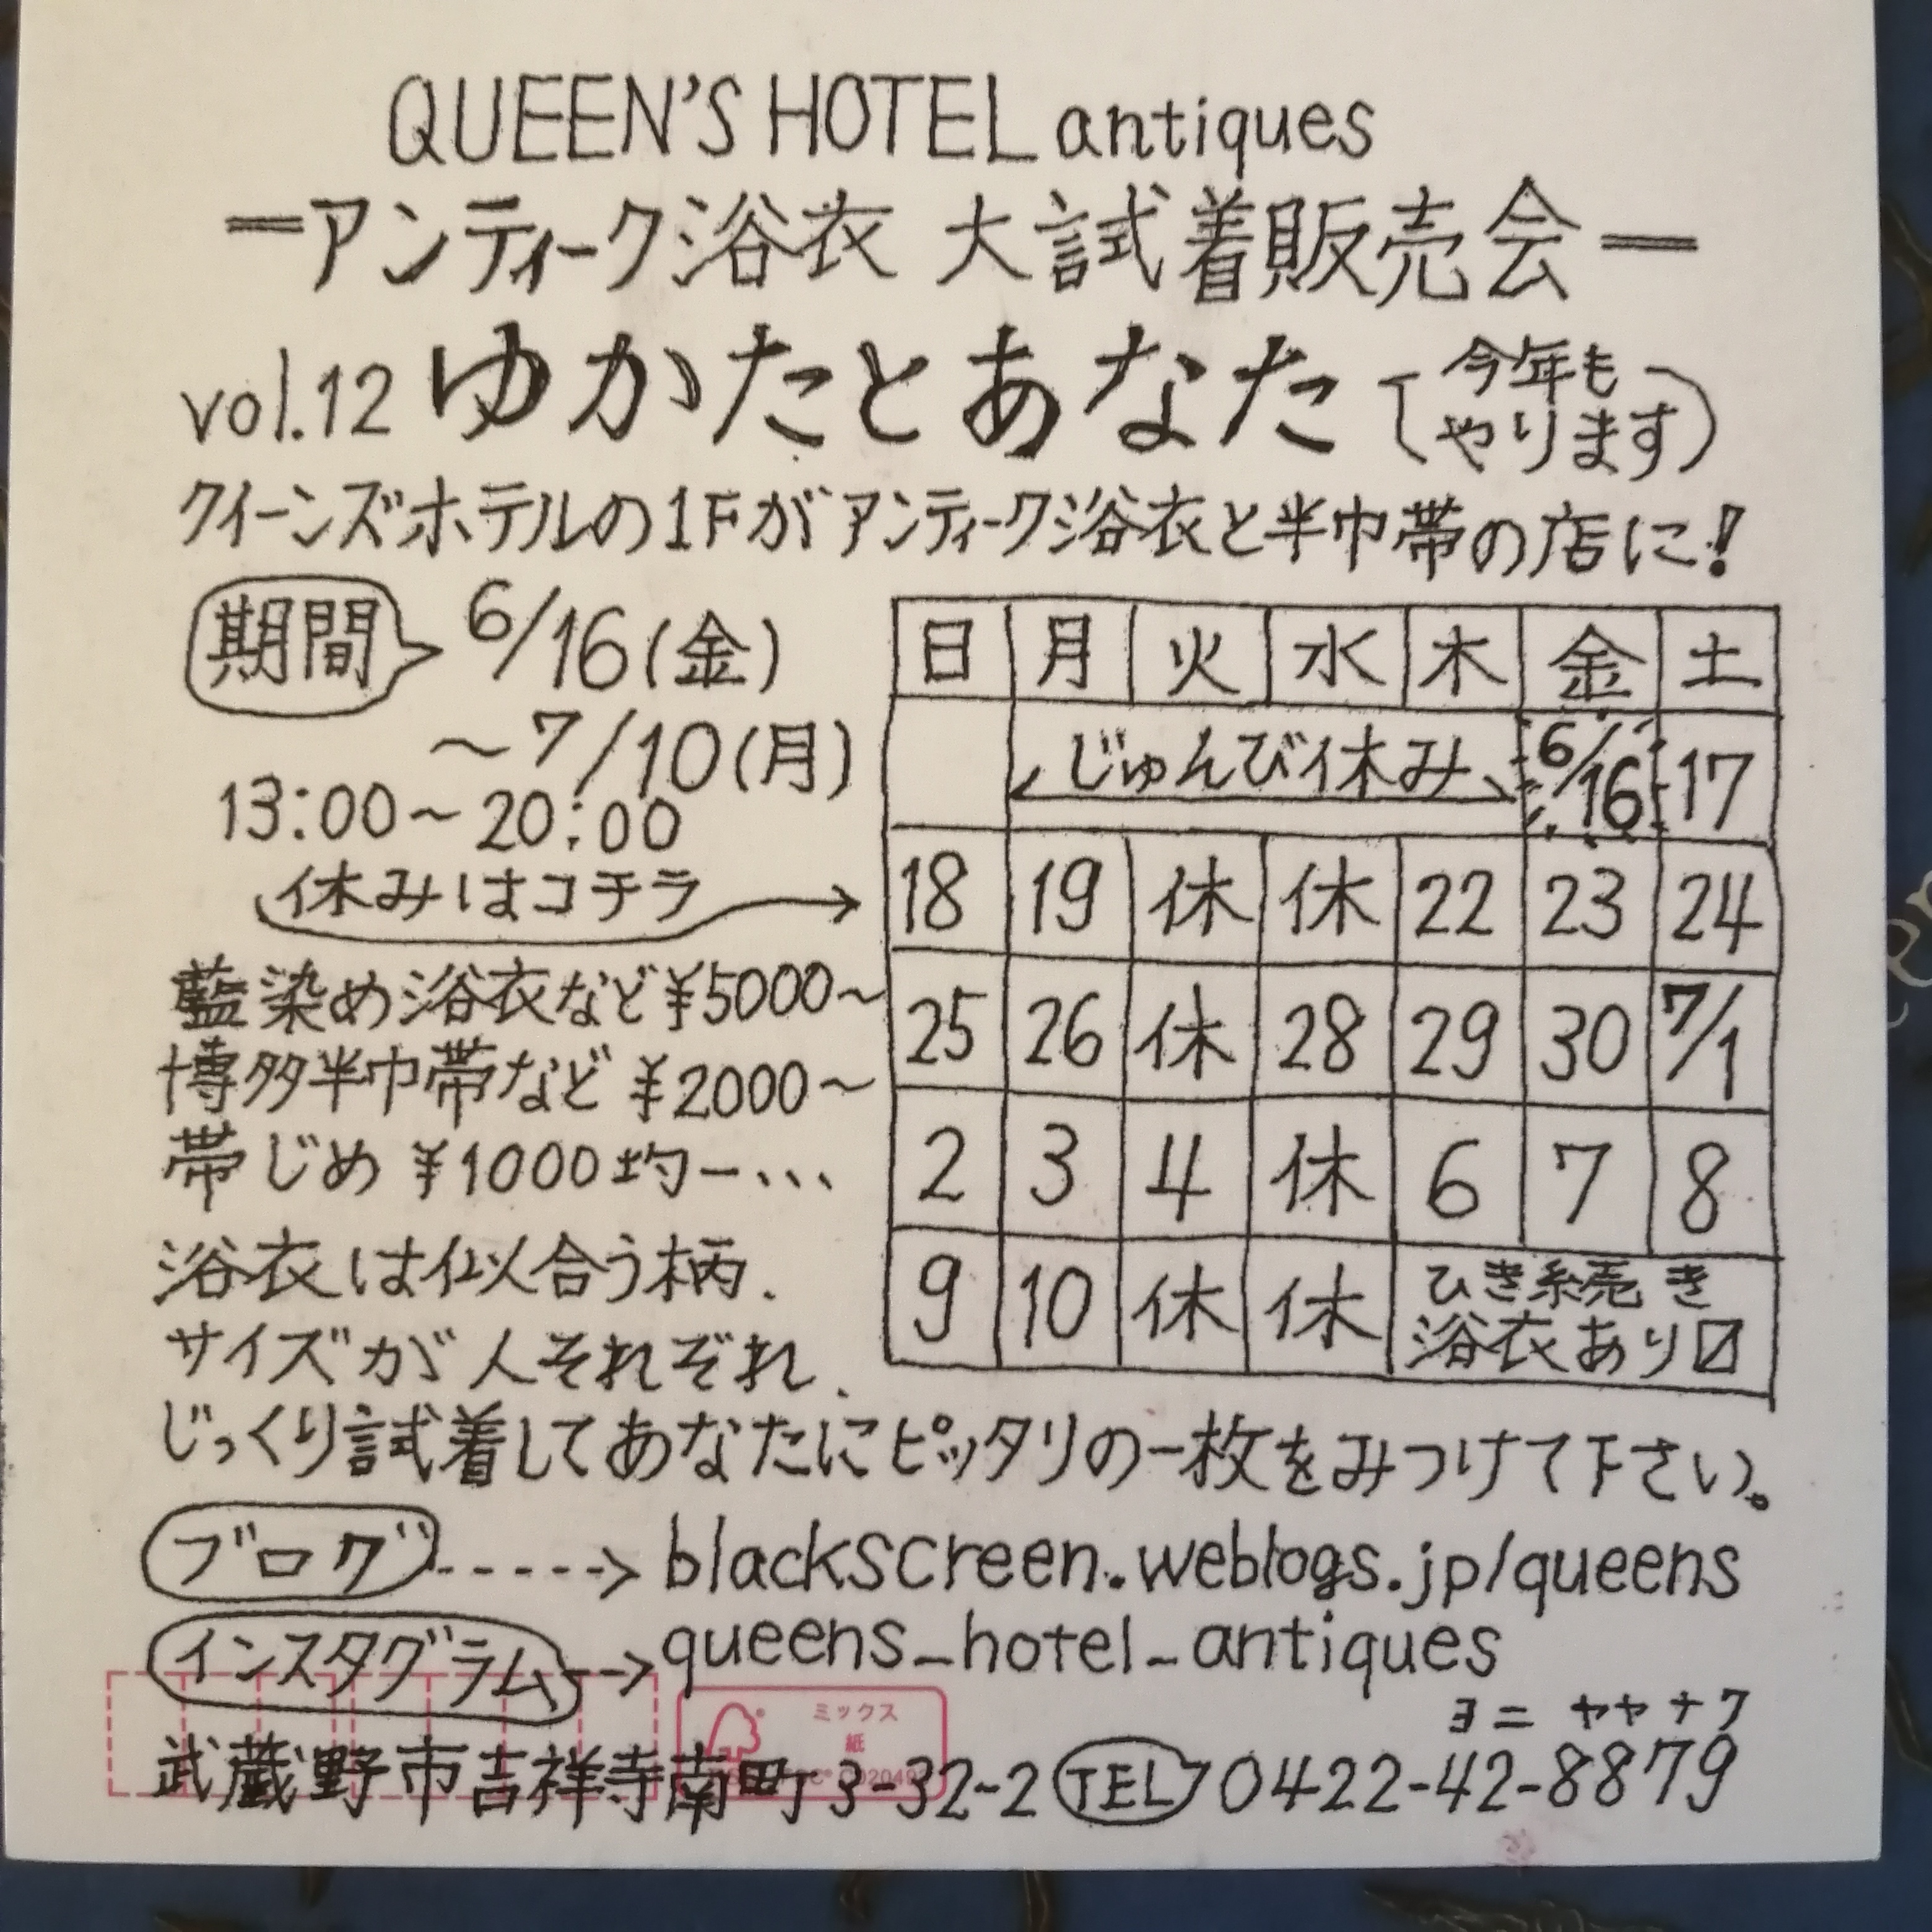 QUEEN'S HOTEL antiques
=アンティーク浴衣 大試着販売会=
vol.12 ゆかたとあなた(今年もやります)
クイーンズホテルの1Fがアンティーク浴衣と半巾帯の店に!
期間 6/16(金)
〜7/10(月)
13:00〜20:00
休みはコチラ→
藍染め浴衣など¥5000〜
博多半巾帯など¥2000〜
帯じめ ¥1000均一…
浴衣は似合う柄.
サイズが人それぞれ.
日 月 火 水 木 金 土
じゅんび休み 6/16 17
18 19 休 休 22 23 24
25 26 休 28 29 30 7/1
2 3 4 休 6 7 8
9 10 休 休 ひき続き
浴衣あり〼
じっくり試着してあなたにピッタリの一枚をみつけて下さい。
ブログ-----> blackscreen.weblogs.jp/queens
インスタグラム--> queens_hotel_antiques
ミックス
紙
ヨニ ヤヤナク
武蔵野市吉祥寺南町3-32-2 TEL 0422-42-8879